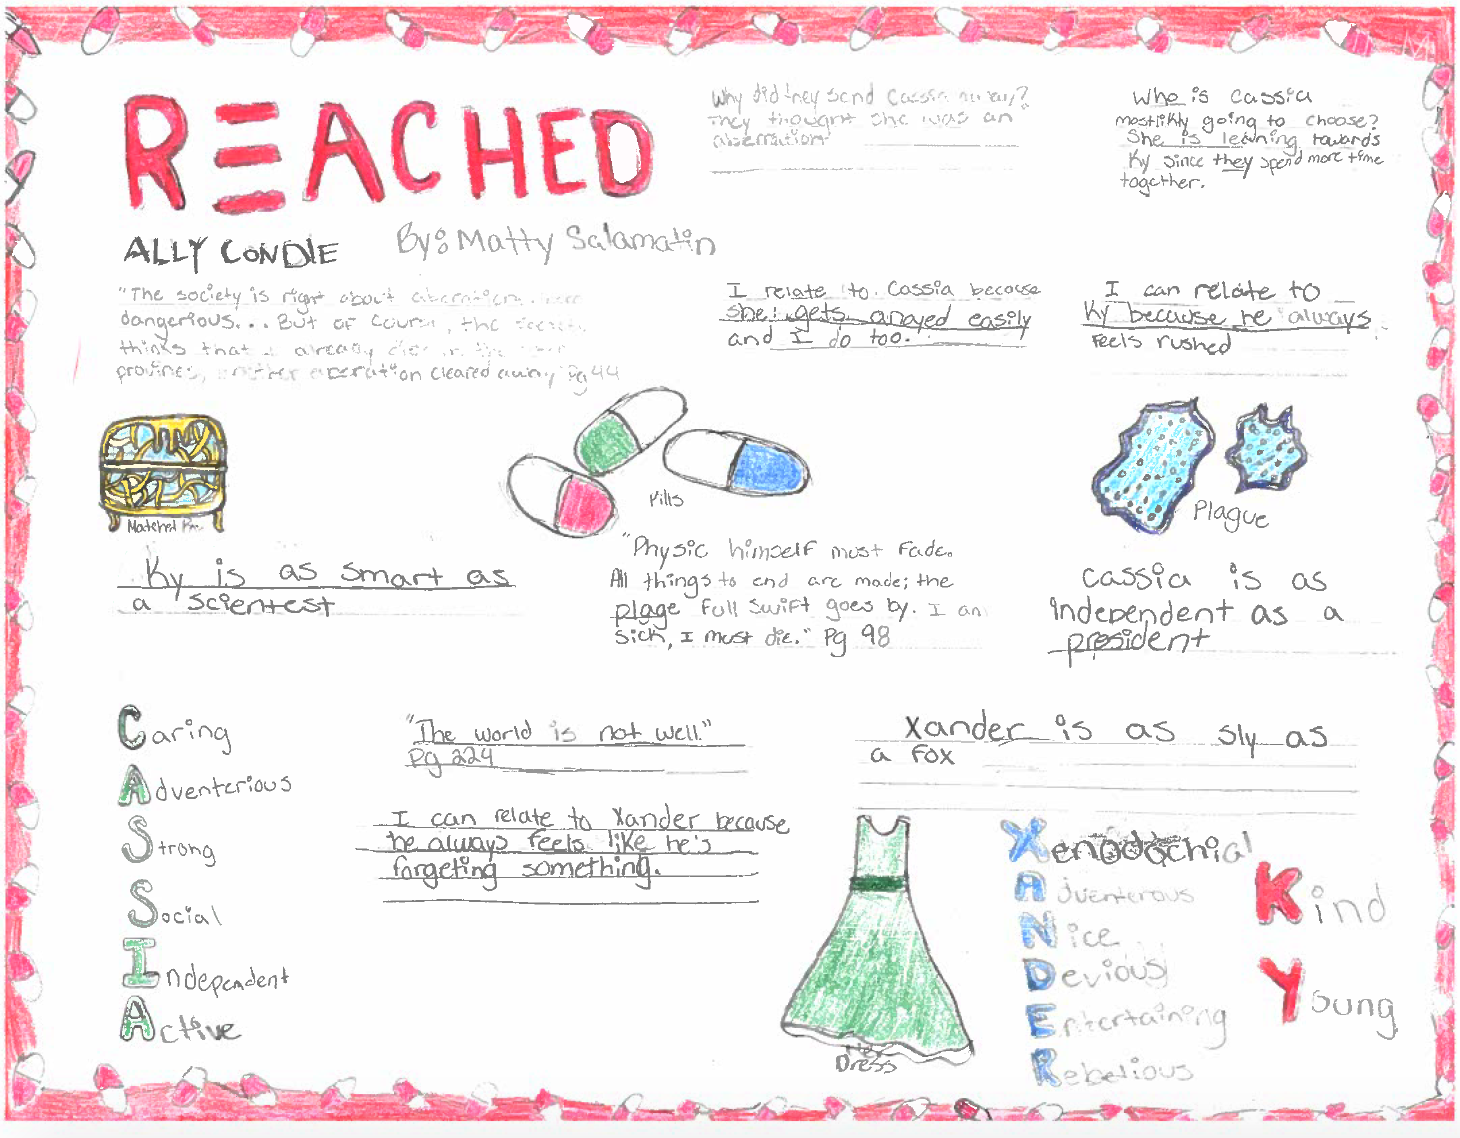 REACHED
ALLY CONDIE
By: Matty Salamatin
Why did they send Cassia away?
They thought she was an
aberration
Who is Cassia
mostlikly going to choose?
She is leaning towards
Ky since they spend more time
together.
"The society is right about
dangerious... But of course, the
thinks that I already died in the
provines, another cleared away Pg 44
I relate to Cassia because
she gets anoyed easily
and I do too.
I can relate to
Ky because he always
feels rushed
Matched
Pills
Plague
Ky is as smart as
a scientest
"Physic himself must fade.
All things to end are made; the
plage full swift goes by. I am
sick, I must die." Pg 98
Cassia is as
independent as a
president
Caring
Adventerious
Strong
Social
Independent
Active
"The world is not well."
Pg 224
I can relate to Xander because
he always feels like he's
forgeting something.
Xander is as sly as
a fox
Dress
Xenodochial
Adventerous
Nice
Devious
Entertaining
Rebelious
Kind
Young